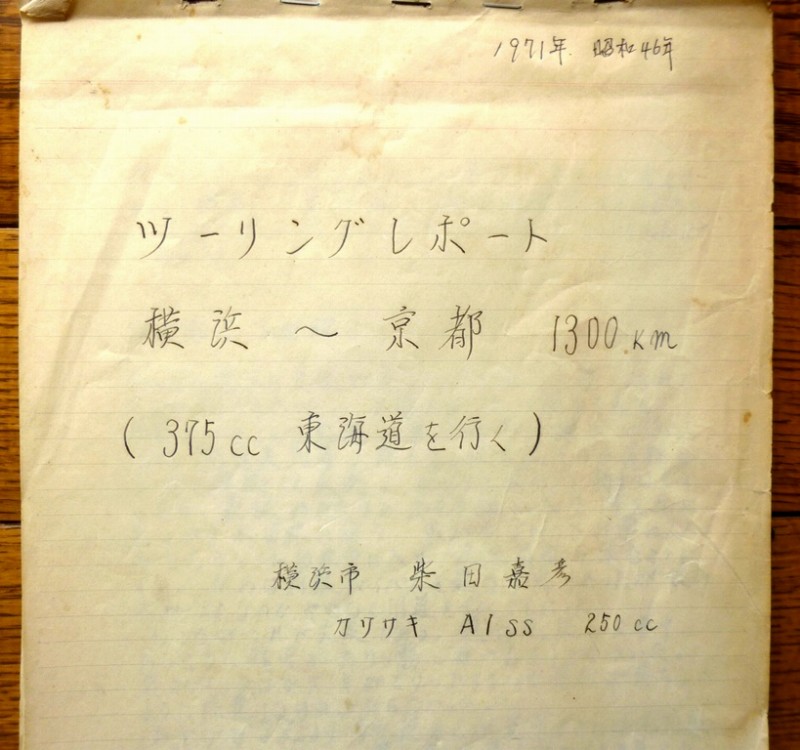 1971年 昭和46年
ツーリングレポート
横浜 〜 京都 1300 Km
( 375cc 東海道を行く )
横浜市 柴田嘉彦
カワサキ A1SS 250cc